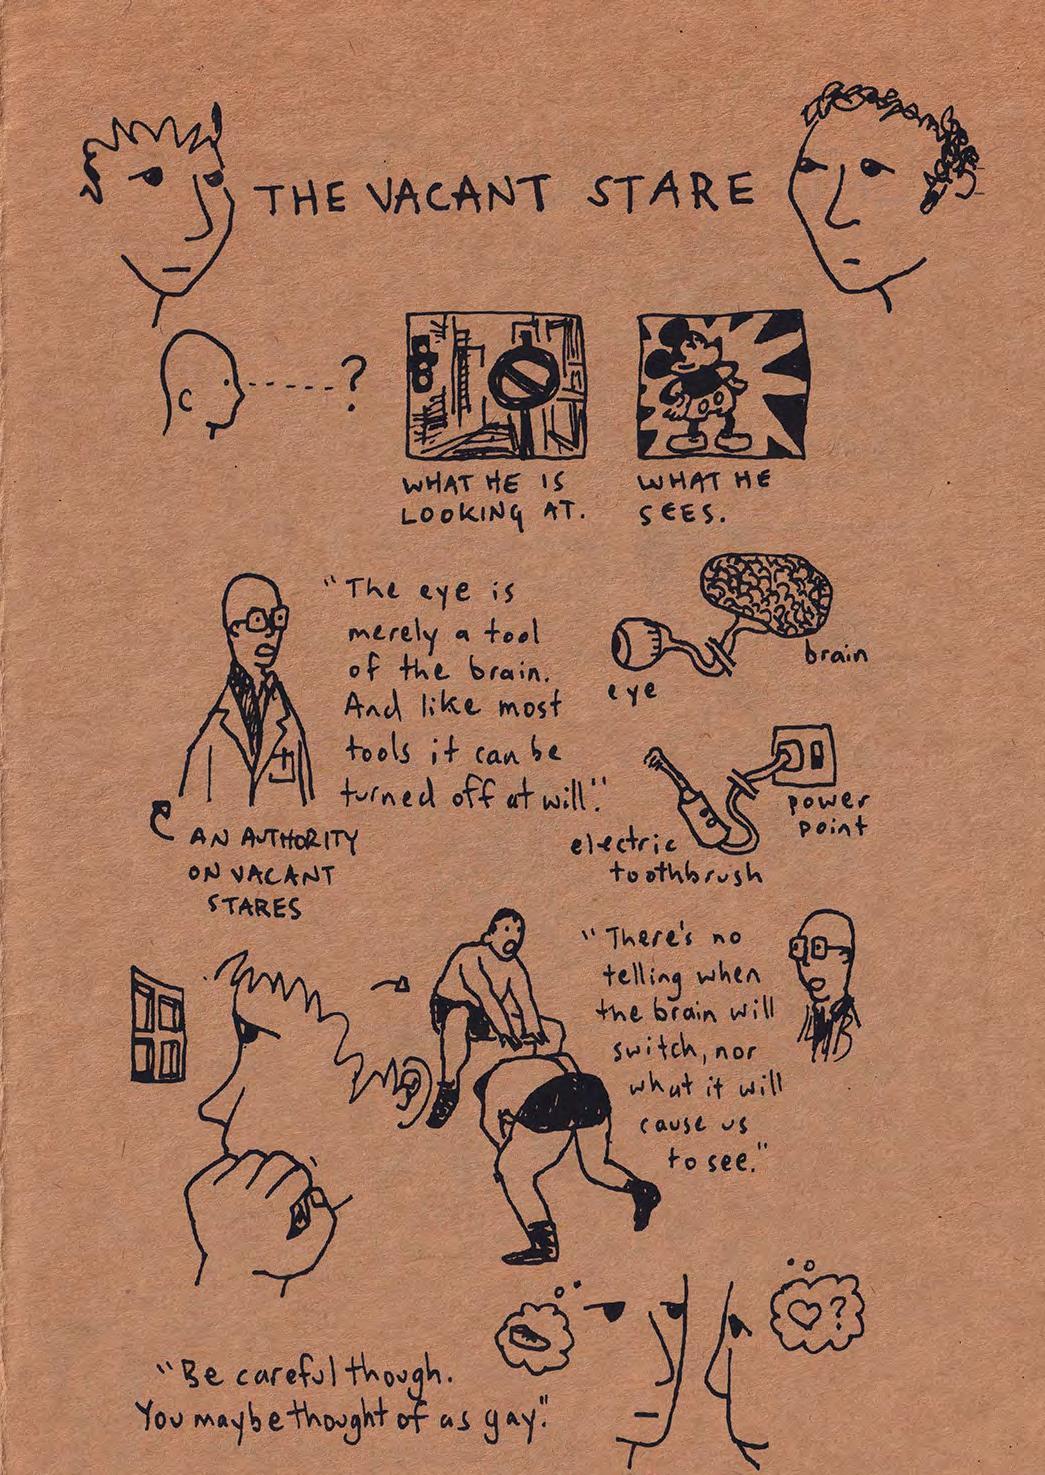 THE VACANT STARE
?
WHAT HE IS
LOOKING AT.
WHAT HE
SEES.
"The eye is
merely a tool
of the brain.
And like most
tools it can be
turned off at will."
brain
eye
power
point
electric
toothbrush
AN AUTHORITY
ON VACANT
STARES
"There's no
telling when
the brain will
switch, nor
what it will
cause us
to see."
?
"Be careful though.
You maybe thought of as gay."